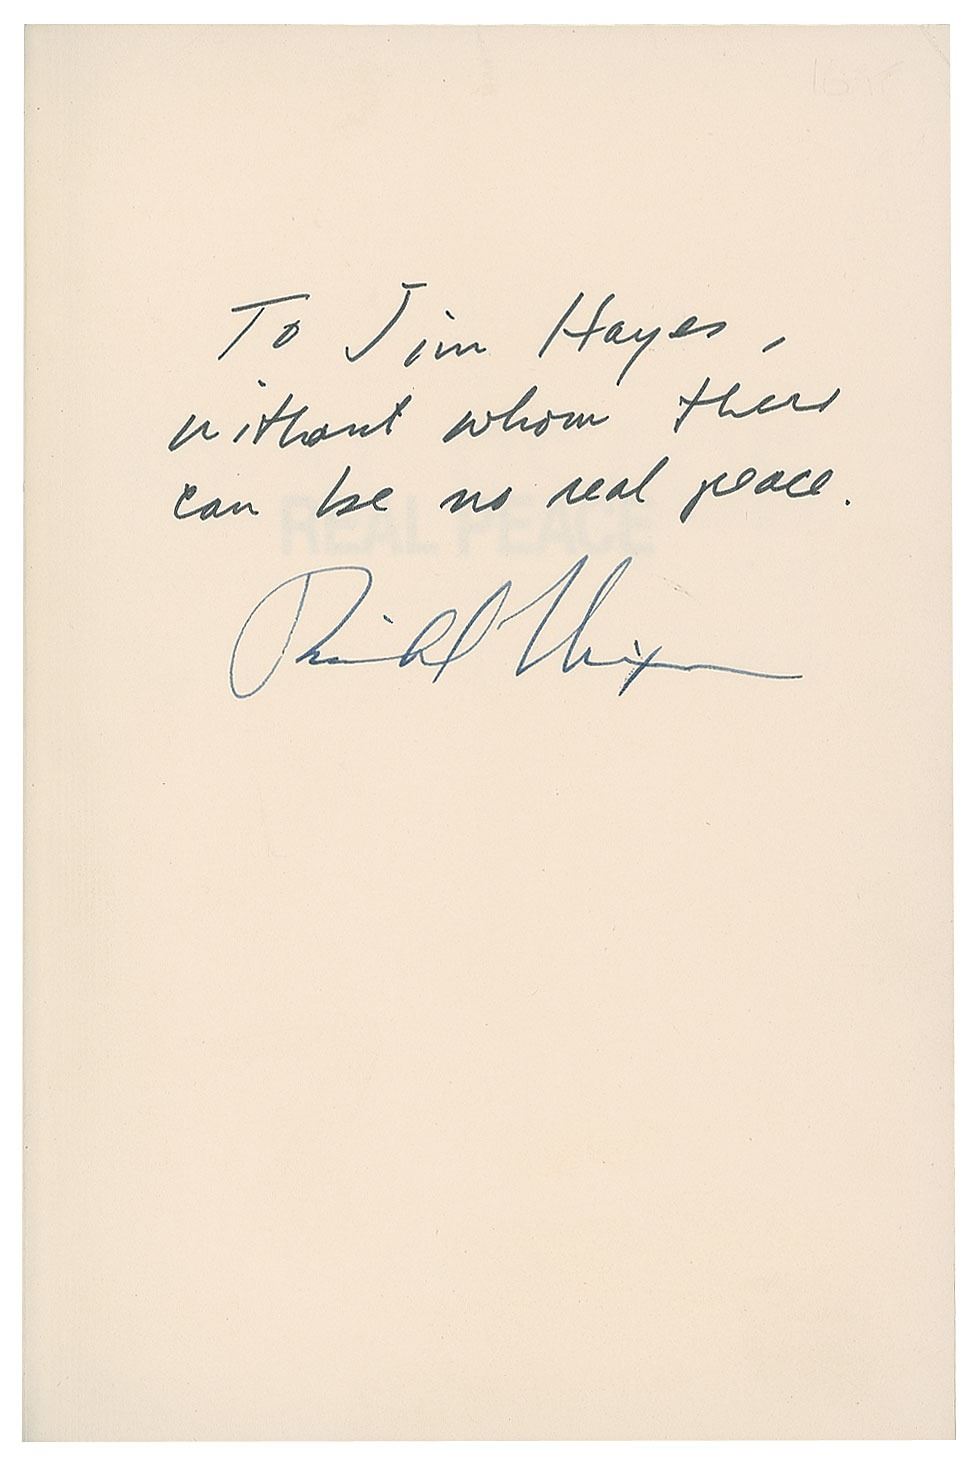 To Jim Hayes,
without whom there
can be no real peace.
REAL PEACE
Richard Nixon